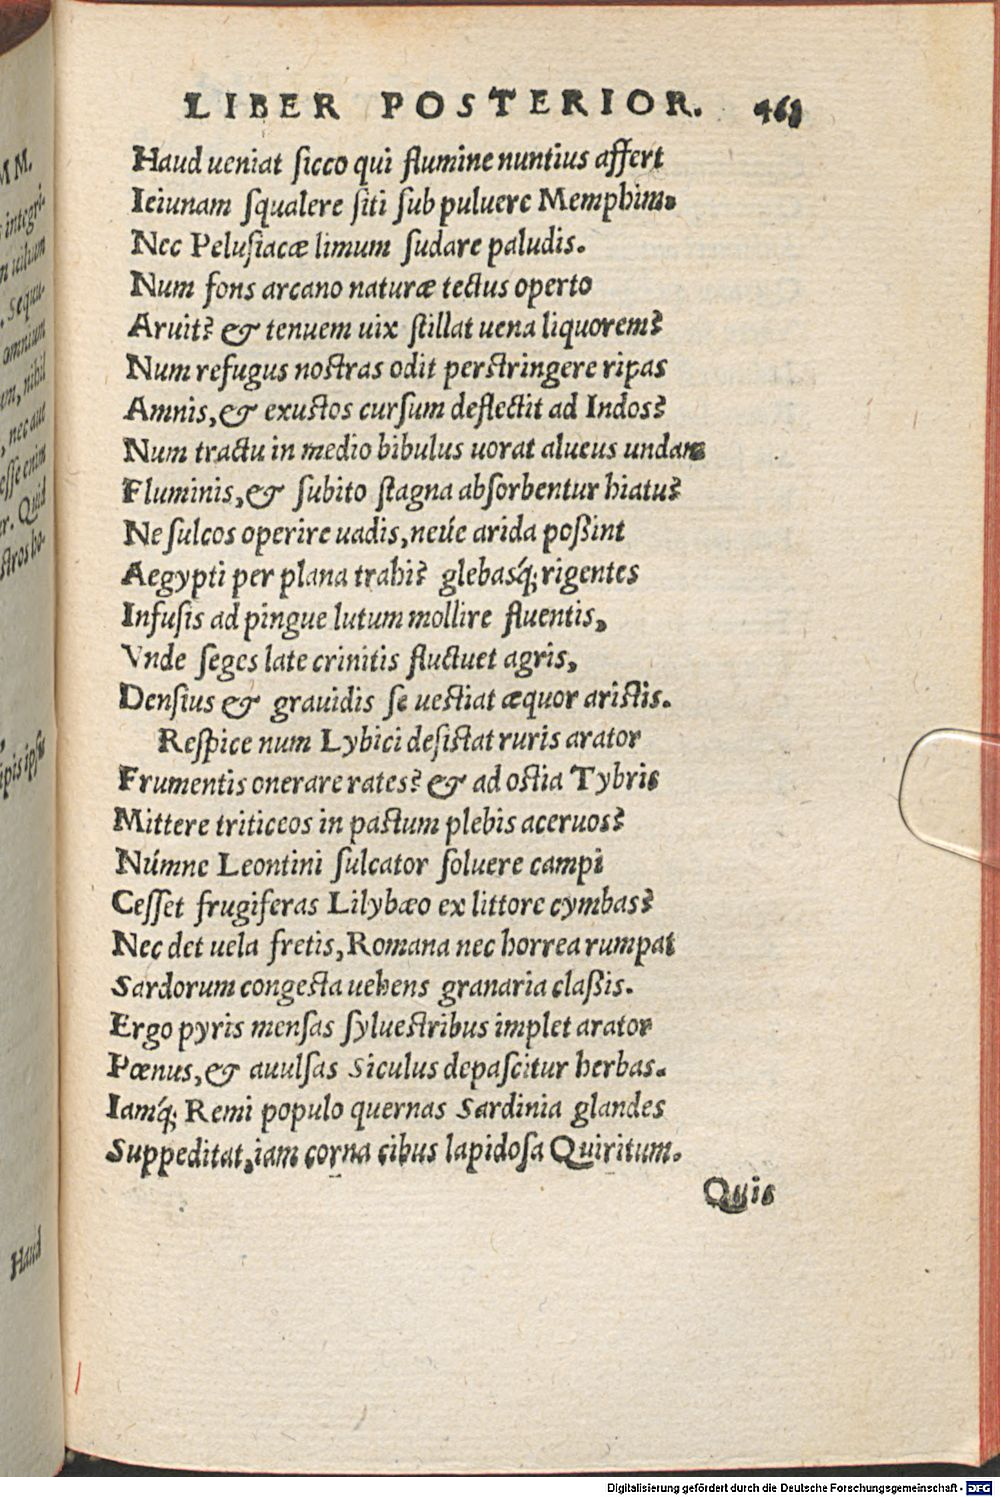 LIBER POSTERIOR. 468
Haud ueniat ſicco qui flumine nuntius affert
Ieiunam ſqualere ſiti ſub puluere Memphim.
Nec Peluſiacæ limum ſudare paludis.
Num fons arcano naturæ tectus operto
Aruit? & tenuem uix ſtillat uena liquorem?
Num refugus noſtras odit perſtringere ripas
Amnis, & exuſtos curſum deflectit ad Indos?
Num tractu in medio bibulus uorat alueus undam
Fluminis, & ſubito ſtagna abſorbentur hiatu?
Ne ſulcos operire uadis, neúe arida poßint
Aegypti per plana trahi? glebasq́; rigentes
Infuſis ad pingue lutum mollire fluentis,
Vnde ſeges late crinitis fluctuet agris,
Denſius & grauidis ſe ueſtiat æquor ariſtis.
Reſpice num Lybici deſiſtat ruris arator
Frumentis onerare rates? & ad oſtia Tybris
Mittere triticeos in paſtum plebis aceruos?
Númne Leontini ſulcator ſoluere campi
Ceſſet frugiferas Lilybæo ex littore cymbas?
Nec det uela fretis, Romana nec horrea rumpat
Sardorum congeſta uehens granaria claßis.
Ergo pyris menſas ſylueſtribus implet arator
Pœnus, & auulſas Siculus depaſcitur herbas.
Iamq́; Remi populo quernas Sardinia glandes
Suppeditat, iam corna cibus lapidoſa Quiritum.
Quis
MM.
integri-
uilium
Sequu-
omnium
um, nihil
, nec aut
eſſe enim
r. Quid
ſtros bo-
ipis ipſus
Haud
Digitalisierung gefördert durch die Deutsche Forschungsgemeinschaft - DFG